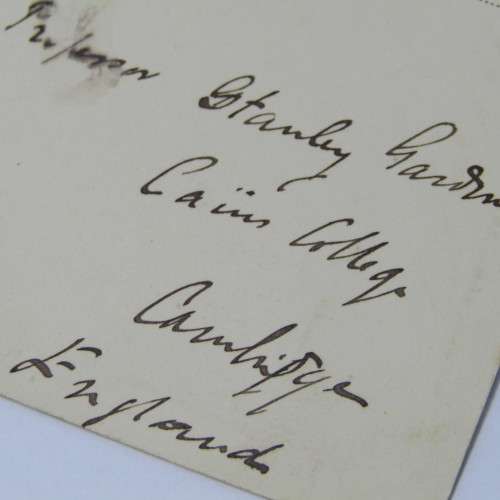 Professor Stanley Gardn
Caius College
Cambridge
England